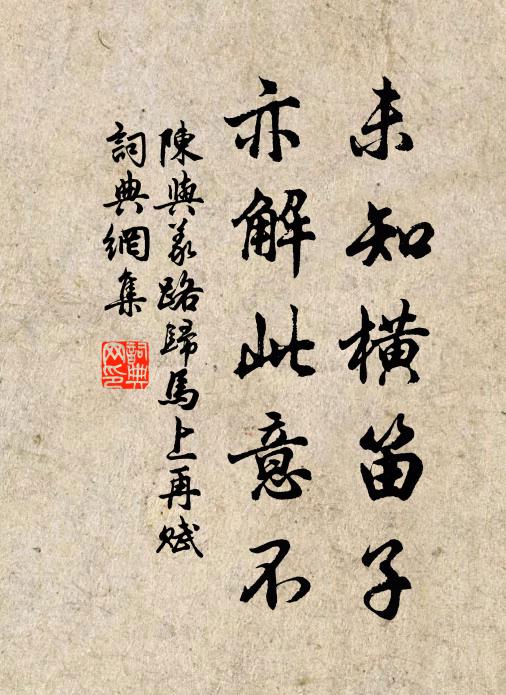 未知橫笛子
亦解此意不
陳與義路歸馬上再賦
詞典網集
詞典网印